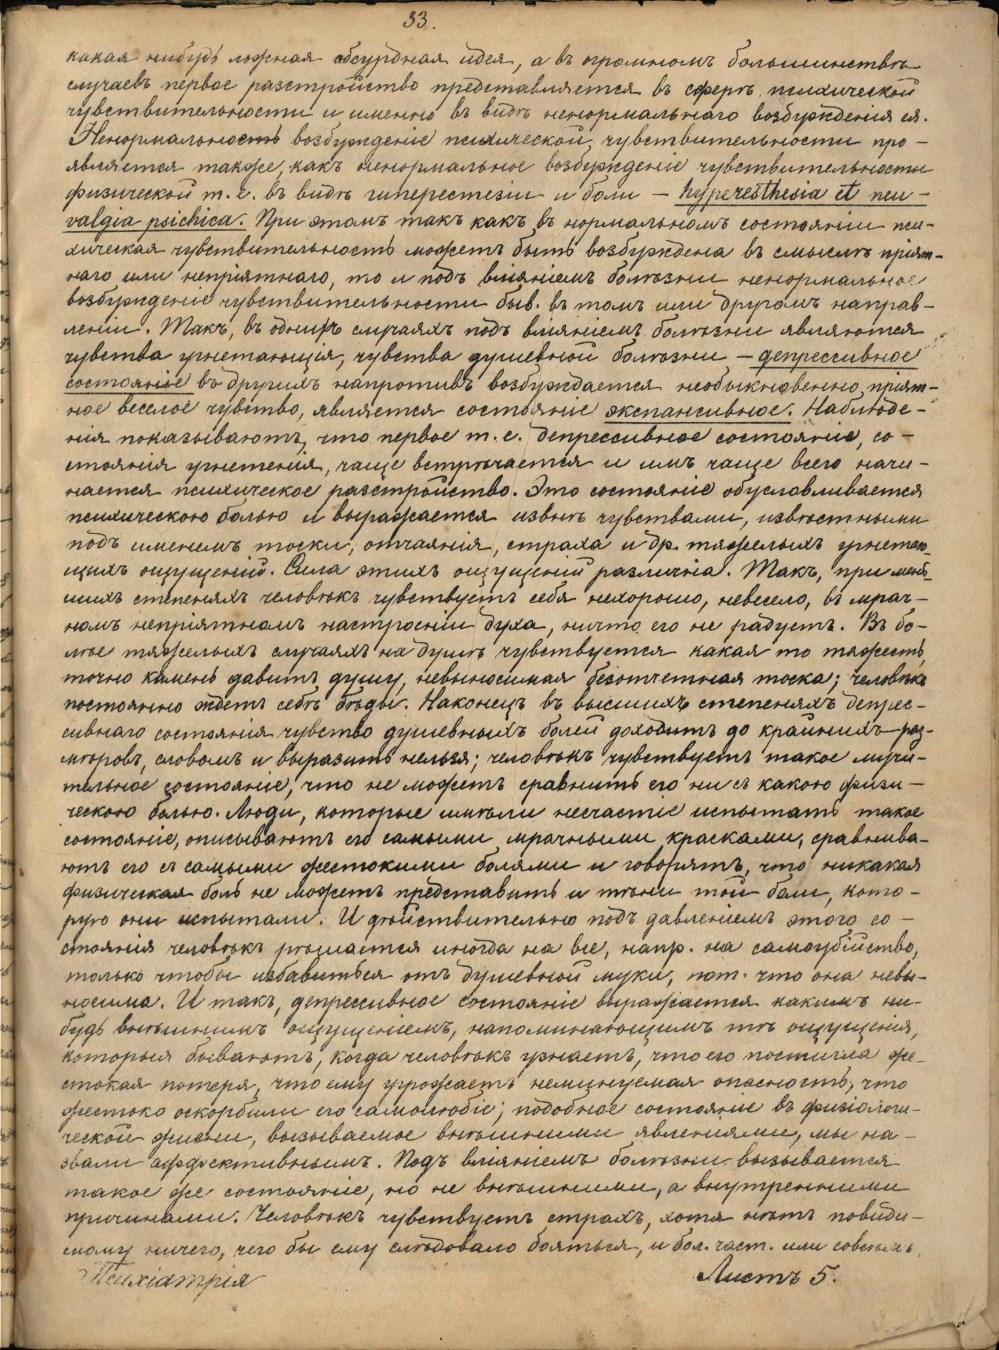 33.
какая нибудь ложная абсурдная идея, а въ огромномъ большинствѣ
случаевъ первое разстройство представляется въ сферѣ психической
чувствительности и именно въ видѣ ненормальнаго возбужденія ея.
Ненормальность возбужденіе психической чувствительности про-
является также, какъ ненормальное возбужденіе чувствительности
физической т. е. въ видѣ гиперестезіи и боли — hyperesthesia et neu-
ralgia psichica. При этомъ такъ какъ въ нормальномъ состояніи пси-
хическая чувствительность можетъ быть возбуждена въ смыслѣ пріят-
наго или непріятнаго, то и подъ вліяніемъ болѣзни ненормальное
возбужденіе чувствительности быв. въ томъ или другомъ направ-
леніи. Такъ, въ однихъ случаяхъ подъ вліяніемъ болѣзни являются
чувства угнетающія, чувства душевной болѣзни — депрессивное
состояніе въ другихъ напротивъ возбуждается необыкновенно пріят-
ное веселое чувство, является состояніе экспансивное. Наблюде-
нія показываютъ, что первое т. е. депрессивное состояніе, со-
стоянія угнетенія, чаще встрѣчается и имъ чаще всего начи-
нается психическое разстройство. Это состояніе обусловливается
психическою болью и выражается извнѣ чувствами, извѣстными
подъ именемъ тоски, отчаянія, страха и др. тяжелыхъ угнетаю-
щихъ ощущеній. Сила этихъ ощущеній различна. Такъ, при мень-
шихъ степеняхъ человѣкъ чувствуетъ себя нехорошо, невесело, въ мрач-
номъ непріятномъ настроеніи духа, ничто его не радуетъ. Въ бо-
лѣе тяжелыхъ случаяхъ на душѣ чувствуется какая то тяжесть,
точно камень давитъ душу, невыносимая безотчетная тоска; человѣкъ
постоянно ждетъ себѣ бѣды. Наконецъ въ высшихъ степеняхъ депрес-
сивнаго состоянія чувство душевныхъ болей доходитъ до крайнихъ раз-
мѣровъ, словомъ и выразить нельзя; человѣкъ чувствуетъ такое мучи-
тельное состояніе, что не можетъ сравнить его ни съ какою физи-
ческою болью. Люди, которые имѣли несчастіе испытать такое
состояніе, описываютъ его самыми мрачными красками, сравнива-
ютъ его съ самыми жестокими болями и говорятъ, что никакая
физическая боль не можетъ представить и тѣни той боли, кото-
рую они испытали. И дѣйствительно подъ давленіемъ этого со-
стоянія человѣкъ рѣшается иногда на все, напр. на самоубійство,
только чтобы избавиться отъ душевной муки, пот. что она невы-
носима. И такъ, депрессивное состояніе выражается какимъ ни-
будь внѣшнимъ ощущеніемъ, напоминающимъ тѣ ощущенія,
которыя бываютъ, когда человѣкъ узнаетъ, что его постигла же-
стокая потеря, что ему угрожаетъ неминуемая опасность, что
жестоко оскорбили его самолюбіе; подобное состояніе въ физіологи-
ческой жизни, вызываемое внѣшними явленіями, мы на-
звали аффективнымъ. Подъ вліяніемъ болѣзни вызывается
такое же состояніе, но не внѣшними, а внутренними
причинами. Человѣкъ чувствуетъ страхъ, хотя нѣтъ повиди-
мому ничего, чего бы ему слѣдовало бояться, и бол. част. или совсѣмъ
Психіатрія
Листъ 5.